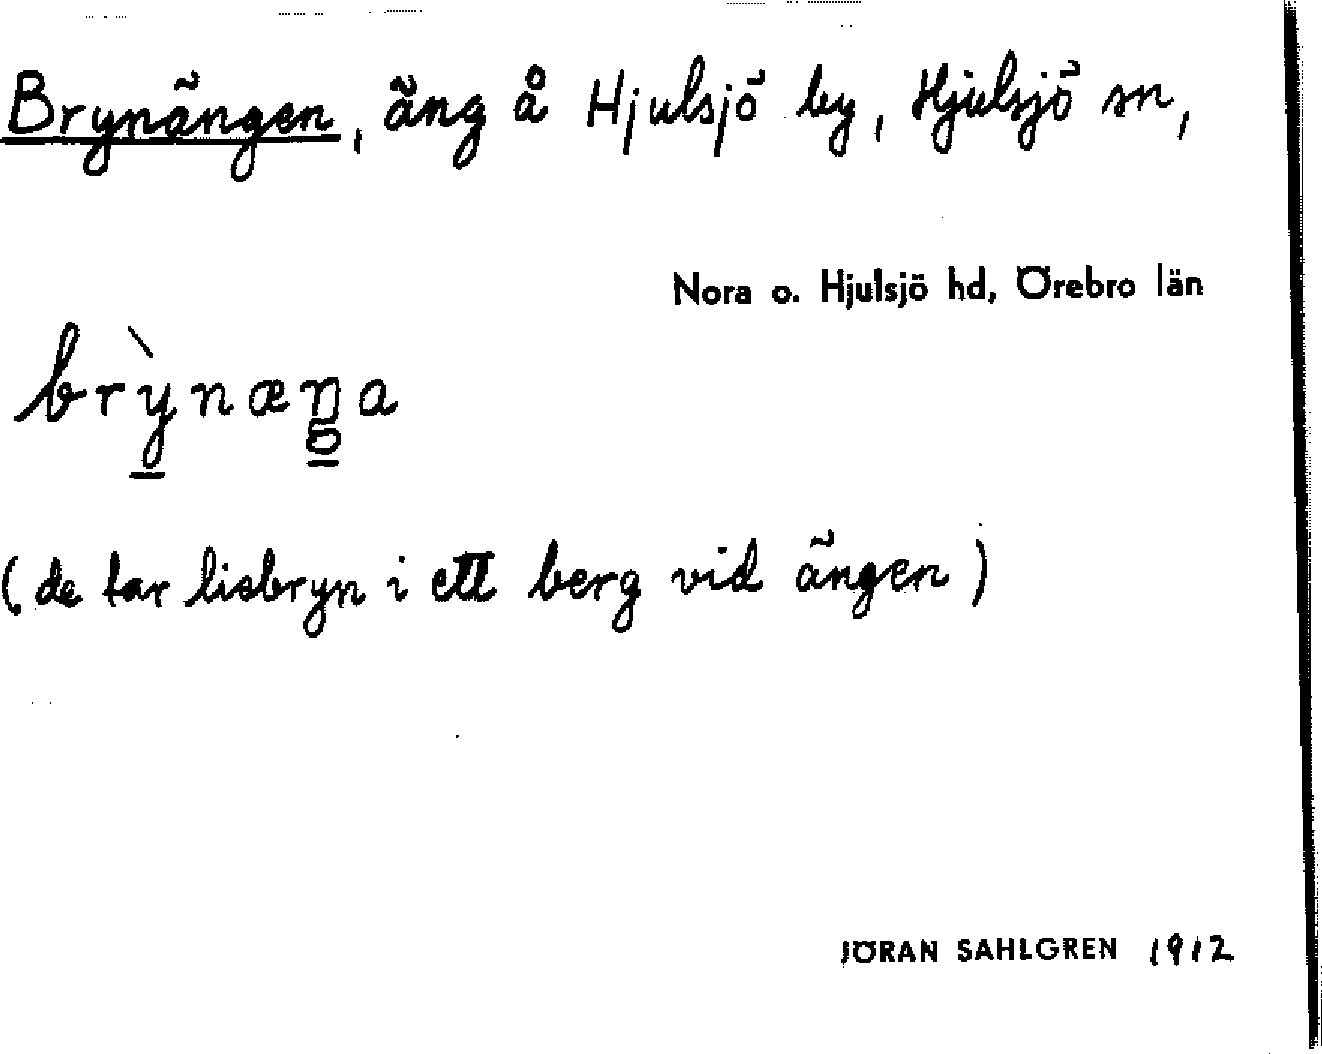 Brynängen, äng å Hjulsjö by, Hjulsjö sn,
Nora o. Hjulsjö hd, Örebro län
brỳnæŋa
g
(de tar liebryn i ett berg vid ängen)
JÖRAN SAHLGREN 1912